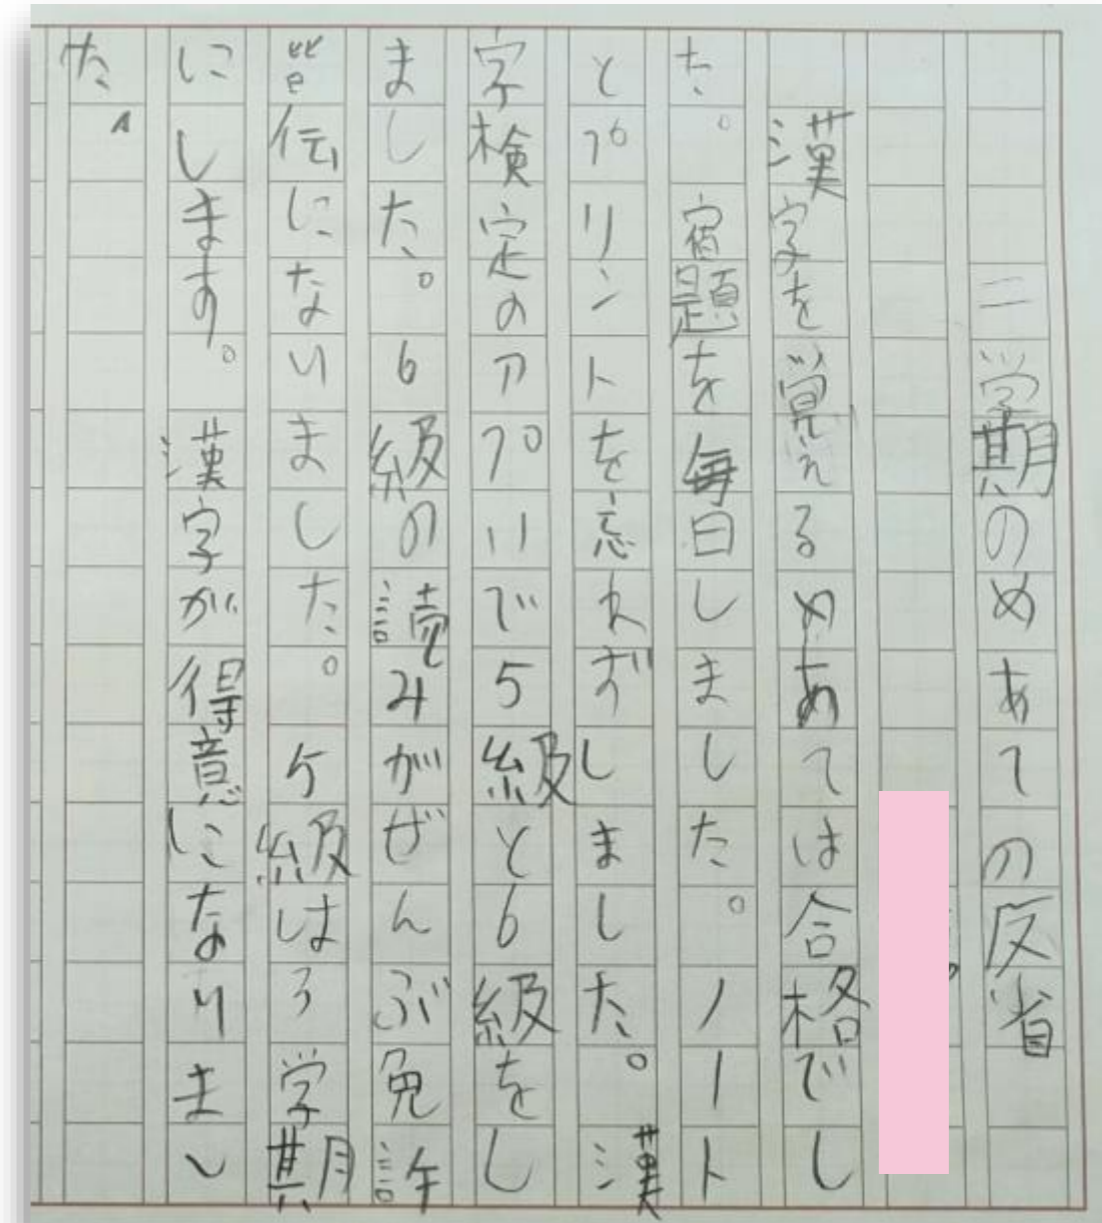 二学期のめあての反省
漢字を覚えるめあては合格でし
た。宿題を毎日しました。ノート
とプリントを忘れずしました。漢
字検定のアプリで5級と6級をし
ました。6級の読みがぜんぶ免許
皆伝になりました。5級は3学期
にします。漢字が得意になりまし
た。